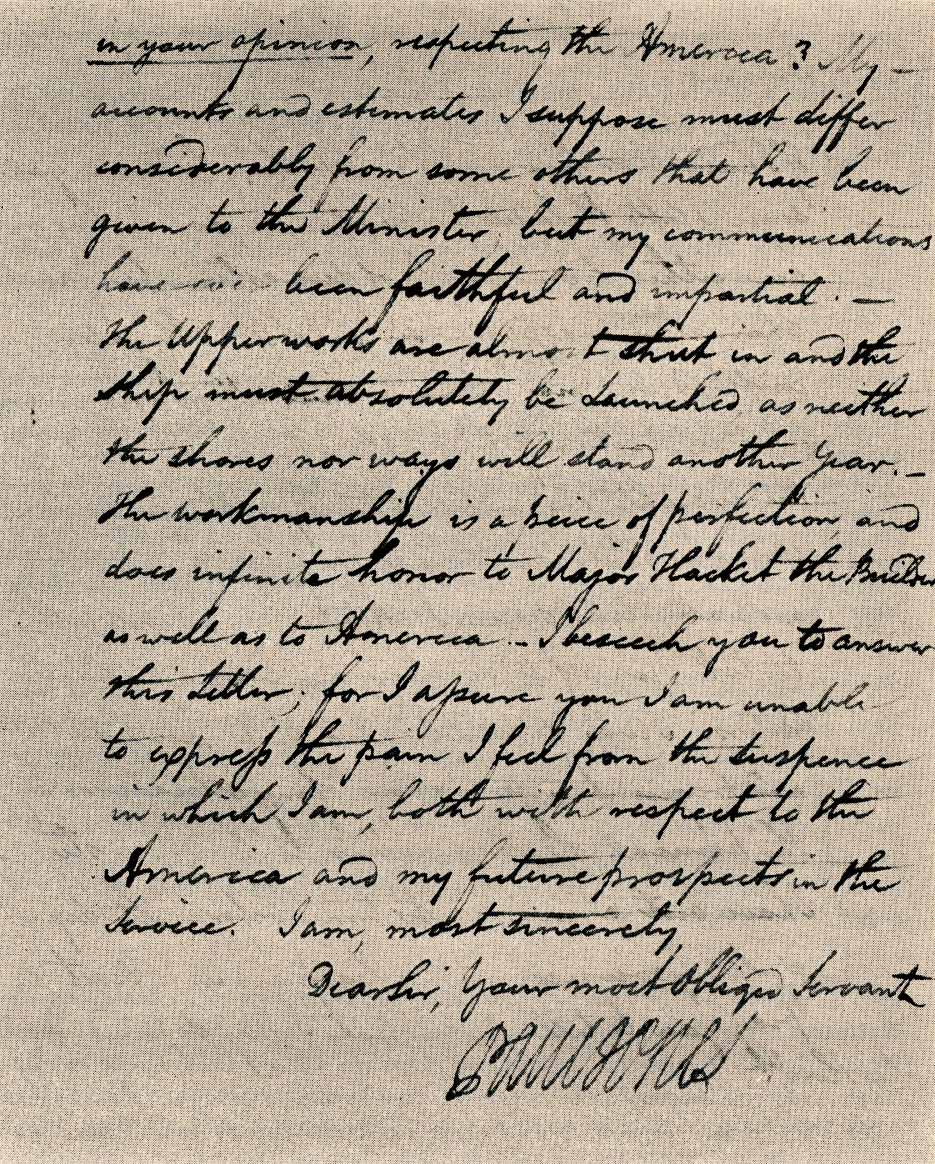 in your opinion, respecting the America? My –
accounts and estimates I suppose must differ
considerably from some others that have been
given to the Minister, but my communications
have ever been faithful and impartial. —
The Upperworks are almost shut in and the
ship must absolutely be Launched as neither
the shores nor ways will stand another Year. –
The workmanship is a peice of perfection, and
does infinite honor to Major Hacket the Builder
as well as to America. – I beseech you to answer
this Letter; for I assure you I am unable
to express the pain I feel from the suspence
in which I am, both with respect to the
America and my future prospects in the
Service. I am, most sincerely,
Dear Sir, Your most Obliged Servant
Paul Jones